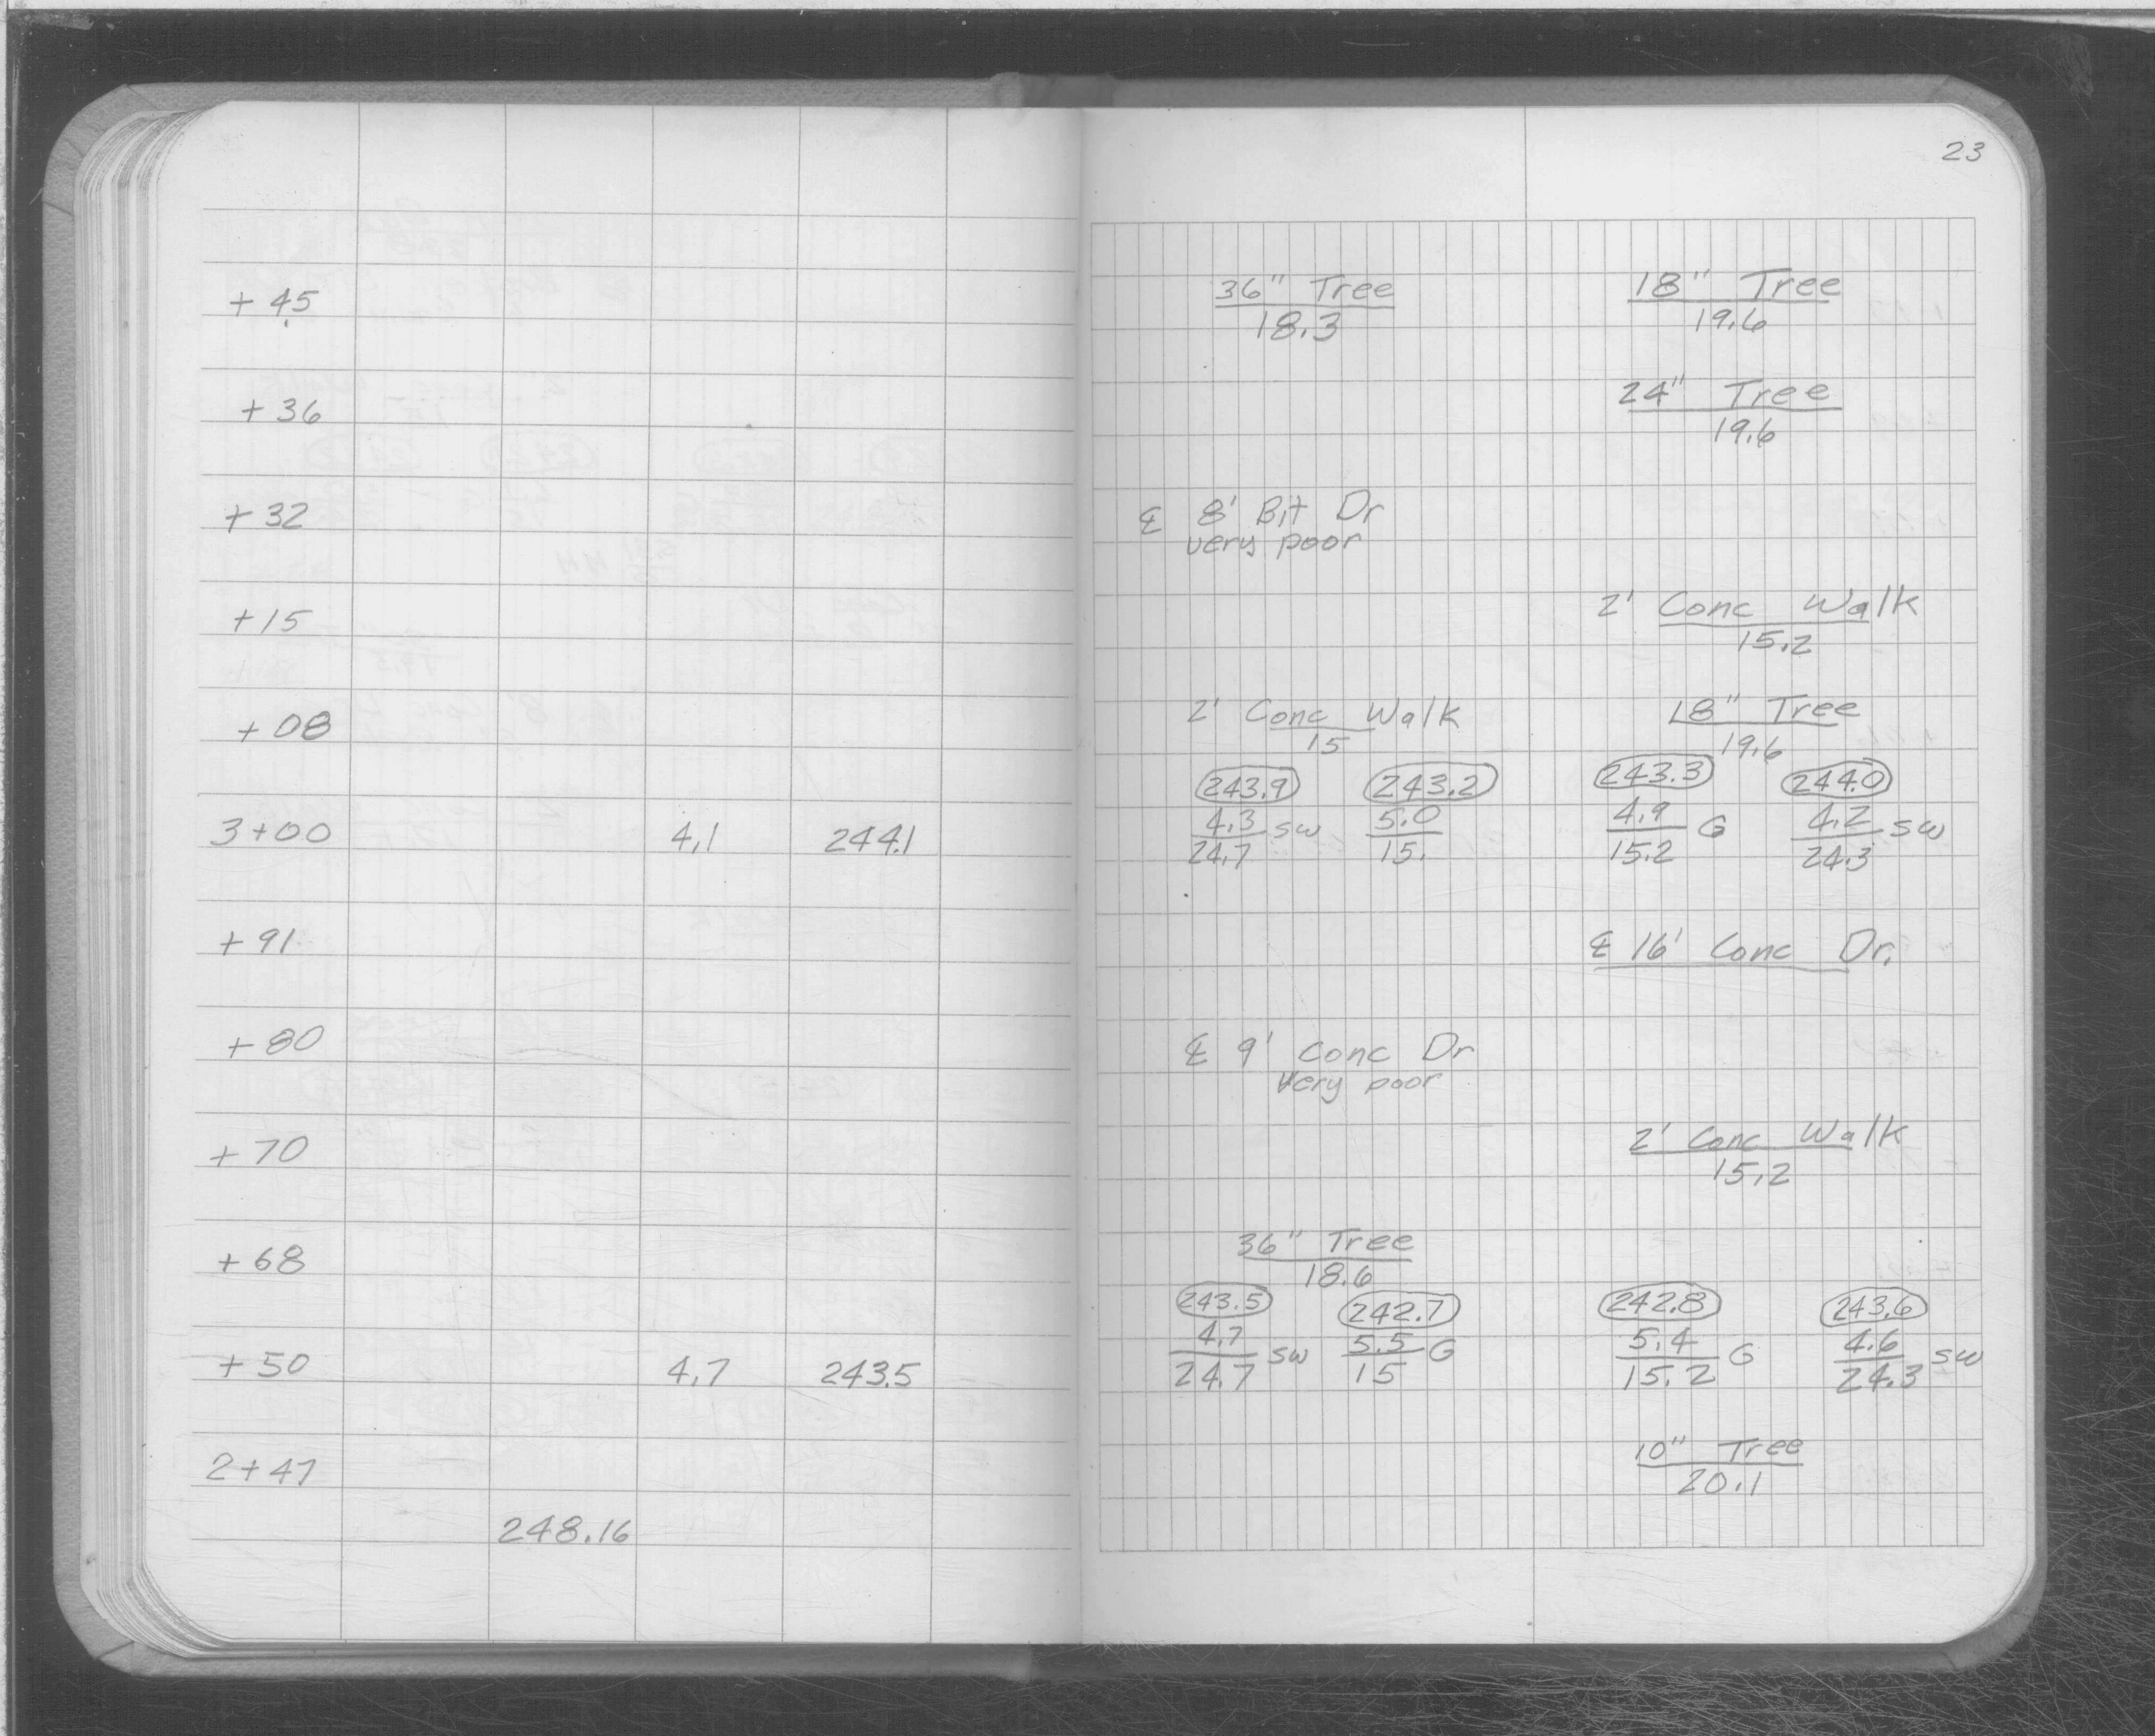 23
+ 45 36" Tree 18" Tree
18.3 19.6
+ 36 24" Tree
19.6
+ 32 ℄ 8' Bit Dr
very poor
+ 15 2' Conc Walk
15.2
+ 08 2' Conc Walk 18" Tree
15 19.6
243.9 243.2 243.3 244.0
3+00 4.1 244.1 4.3 SW 5.0 4.9 G 4.2 SW
24.7 15. 15.2 24.3
+ 91 ℄ 16' Conc Dr.
+ 80 ℄ 9' Conc Dr
very poor
+ 70 2' Conc Walk
15.2
+ 68 36" Tree
18.6
243.5 242.7 242.8 243.6
+ 50 4.7 243.5 4.7 SW 5.5 G 5.4 G 4.6 SW
24.7 15 15.2 24.3
2+47 10" Tree
20.1
248.16